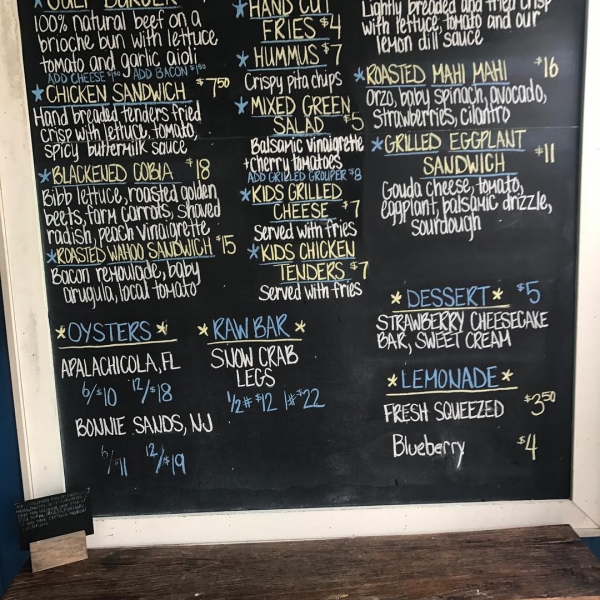 100% natural beef on a
brioche bun with lettuce
tomato and garlic aioli
ADD CHEESE ADD BACON
CHICKEN SANDWICH $7.50
Hand breaded tenders fried
crisp with lettuce, tomato,
spicy buttermilk sauce
BLACKENED COBIA $18
Bibb lettuce, roasted golden
beets, farm carrots, shaved
radish, peach vinaigrette
ROASTED WAHOO SANDWICH $15
Bacon remoulade, baby
arugula, local tomato
HAND CUT
FRIES $4
HUMMUS $7
Crispy pita chips
MIXED GREEN
SALAD $5
Balsamic vinaigrette
+cherry tomatoes
ADD GRILLED GROUPER $8
KIDS GRILLED
CHEESE $7
served with fries
KIDS CHICKEN
TENDERS $7
Served with fries
Lightly breaded and fried crisp
with lettuce, tomato and our
lemon dill sauce
ROASTED MAHI MAHI $16
Orzo, baby spinach, avocado,
strawberries, cilantro
GRILLED EGGPLANT
SANDWICH $11
Gouda cheese, tomato,
eggplant, balsamic drizzle,
sourdough
OYSTERS
APALACHICOLA, FL
6/$10 12/$18
BONNIE SANDS, NJ
6/$11 12/$19
RAW BAR
SNOW CRAB
LEGS
1/2# $12 1# $22
DESSERT $5
STRAWBERRY CHEESECAKE
BAR, SWEET CREAM
LEMONADE
FRESH SQUEEZED $3.50
Blueberry $4